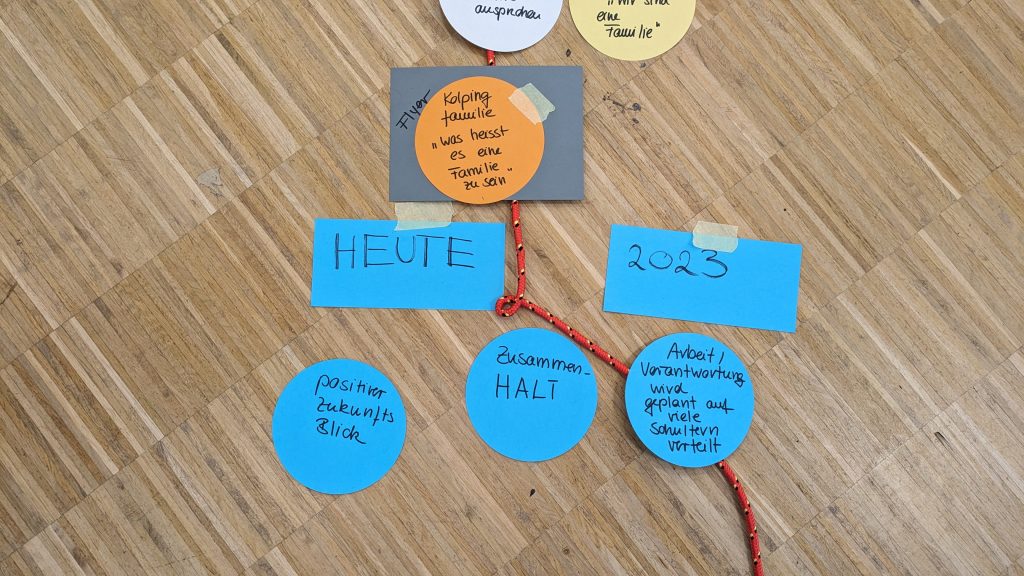 ansprechen
"wir sind
eine
Familie"
Flyer
Kolping
familie
„was heisst
es eine
Familie
zu sein"
HEUTE
2023
positiver
Zukunfts
Blick
Zusammen-
HALT
Arbeit/
Verantwortung
wird
geplant auf
viele
Schultern
verteilt